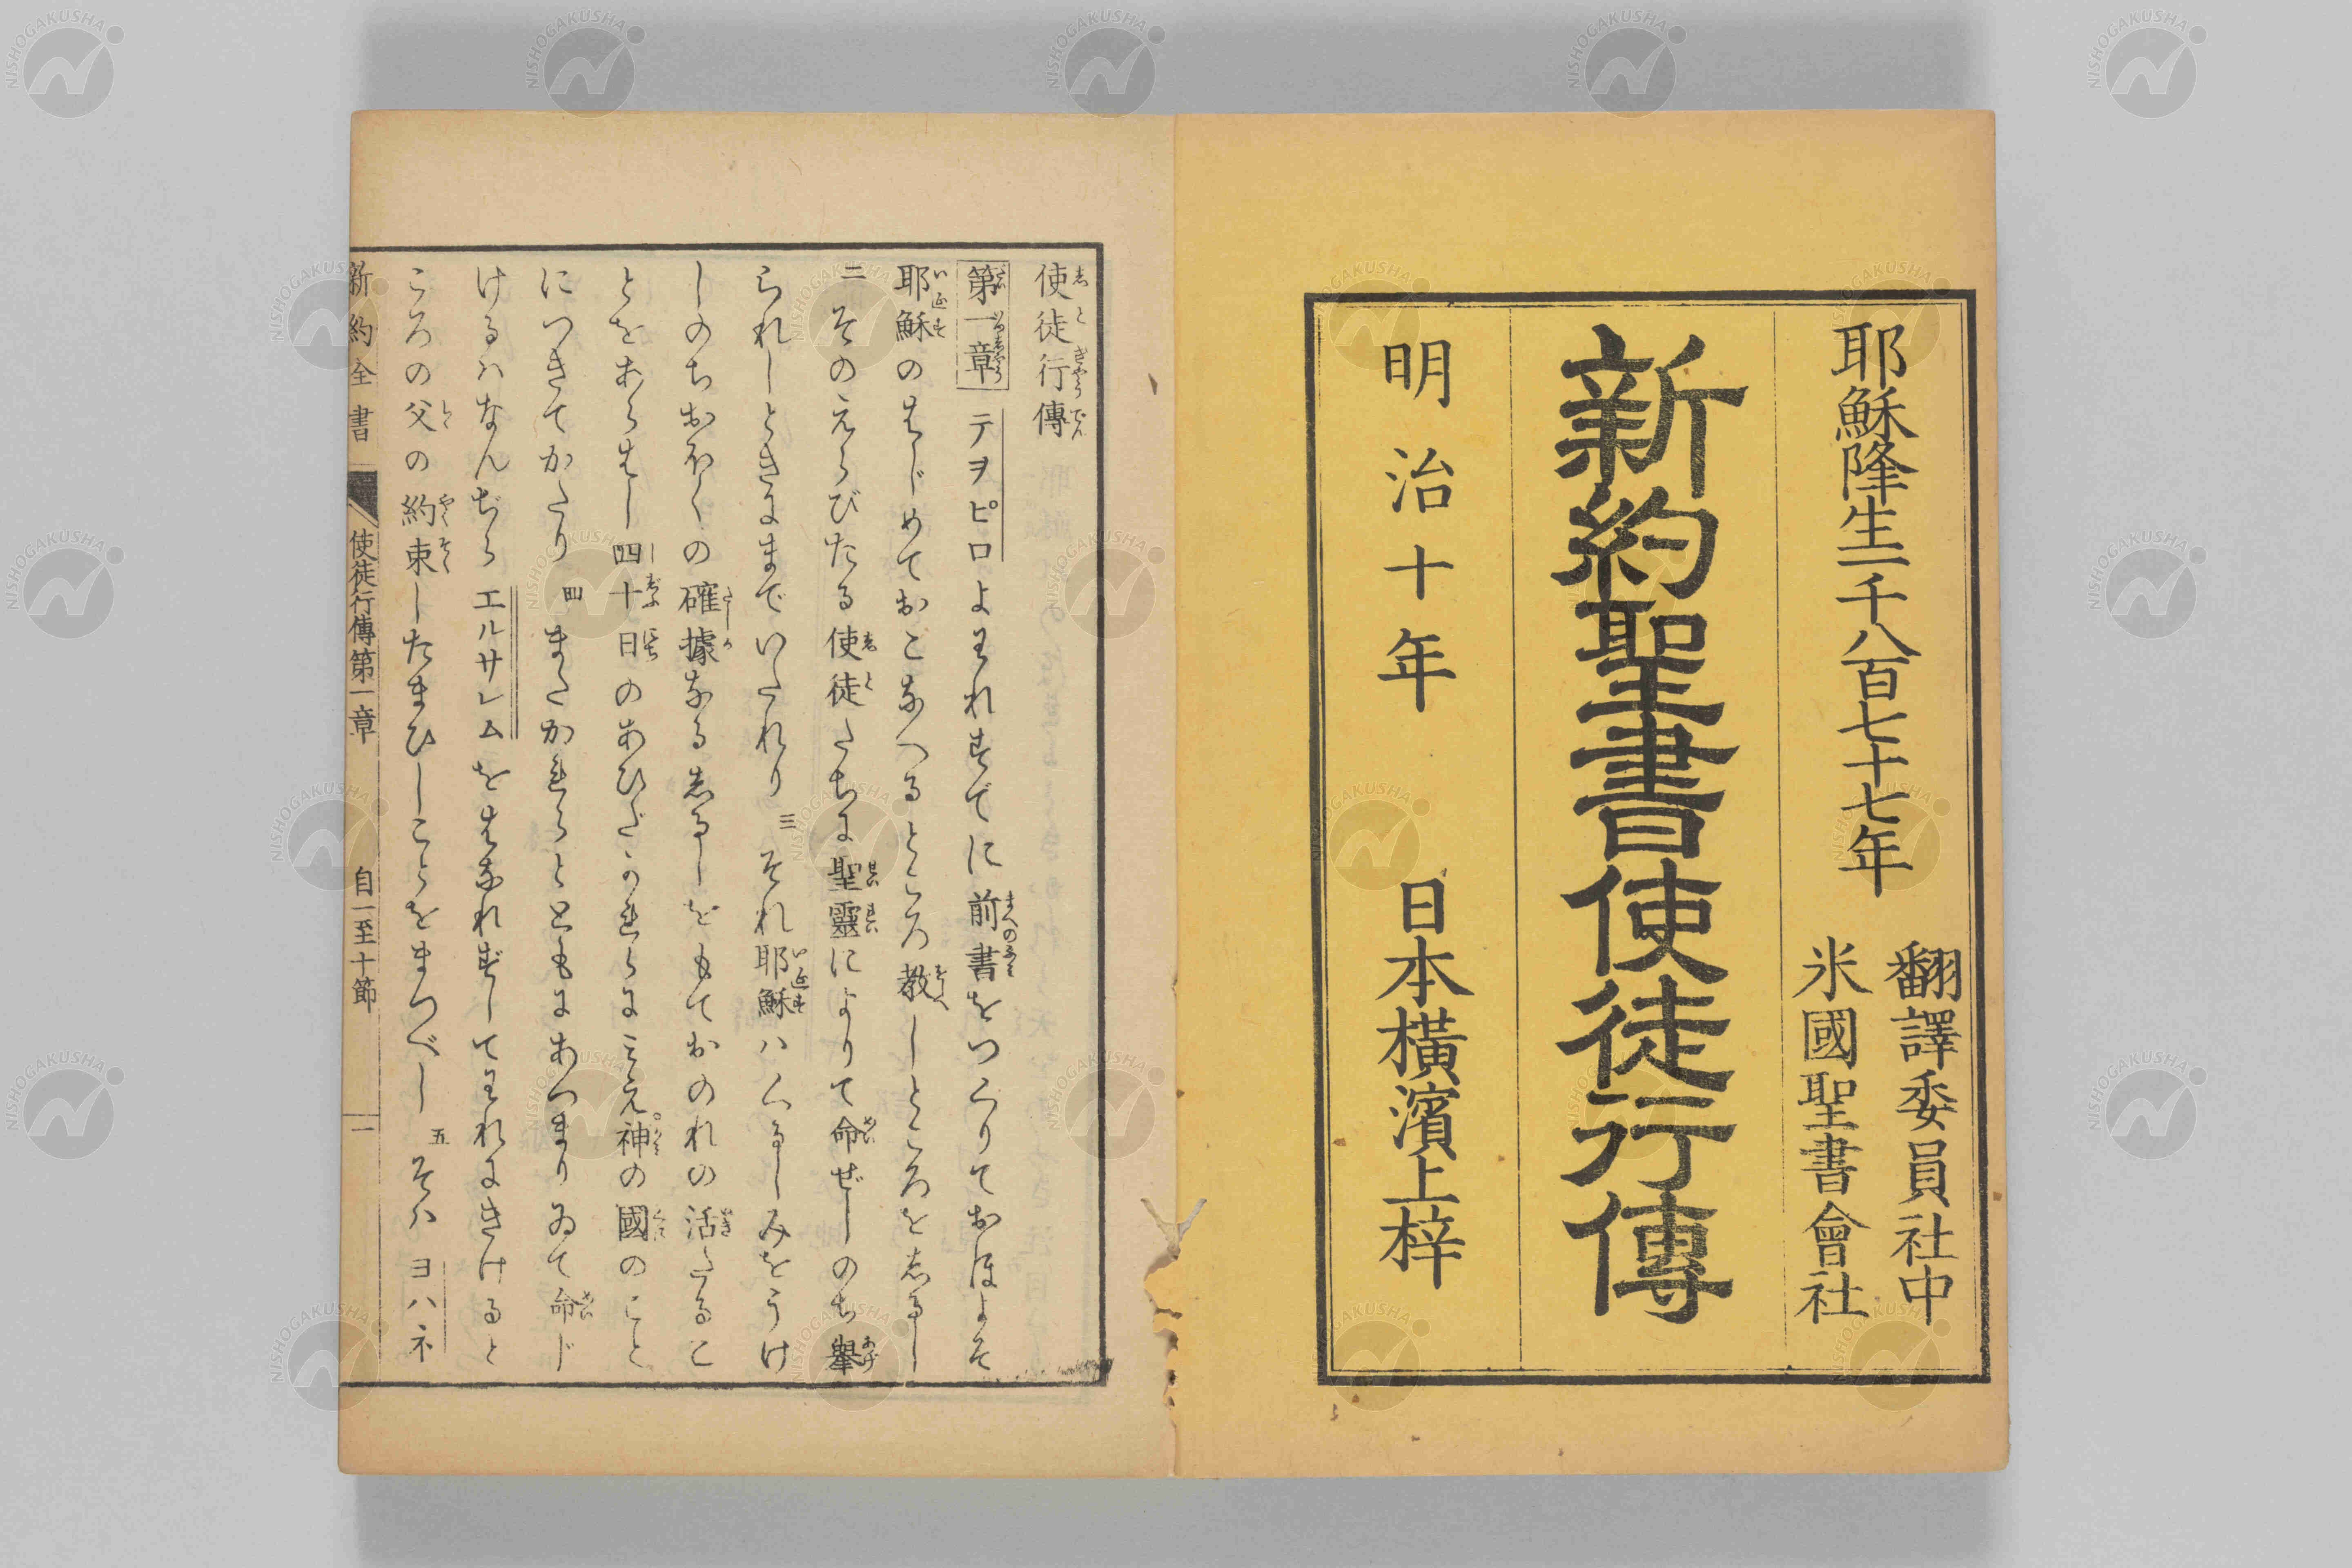 耶穌降生一千八百七十七年
翻譯委員社中
米國聖書會社
新約聖書使徒行傳
明治十年
日本橫濱上梓
使徒行傳
第一章 テヲピロよわれすでに前書をつくりておほよそ
耶穌のはじめておこなへるところ教しところをしるし
二 そのえらびたる使徒たちに聖靈によりて命ぜしのち擧
られしときにまでいたれり 三 それ耶穌ハくるしみをうけ
しのちおほくの確據なるしるしをもておのれの活たるこ
とをあらはし四十日のあひだかれらにみえ神の國のこと
につきてかたり 四 またかれらとともにあつまりゐて命じ
けるハなんぢらエルサレムをはなれずしてわれにきけると
ころの父の約束したまひしことをまつべし 五 そハヨハネ
新約全書 使徒行傳第一章 自一至十節 一
NISHOGAKUSHA